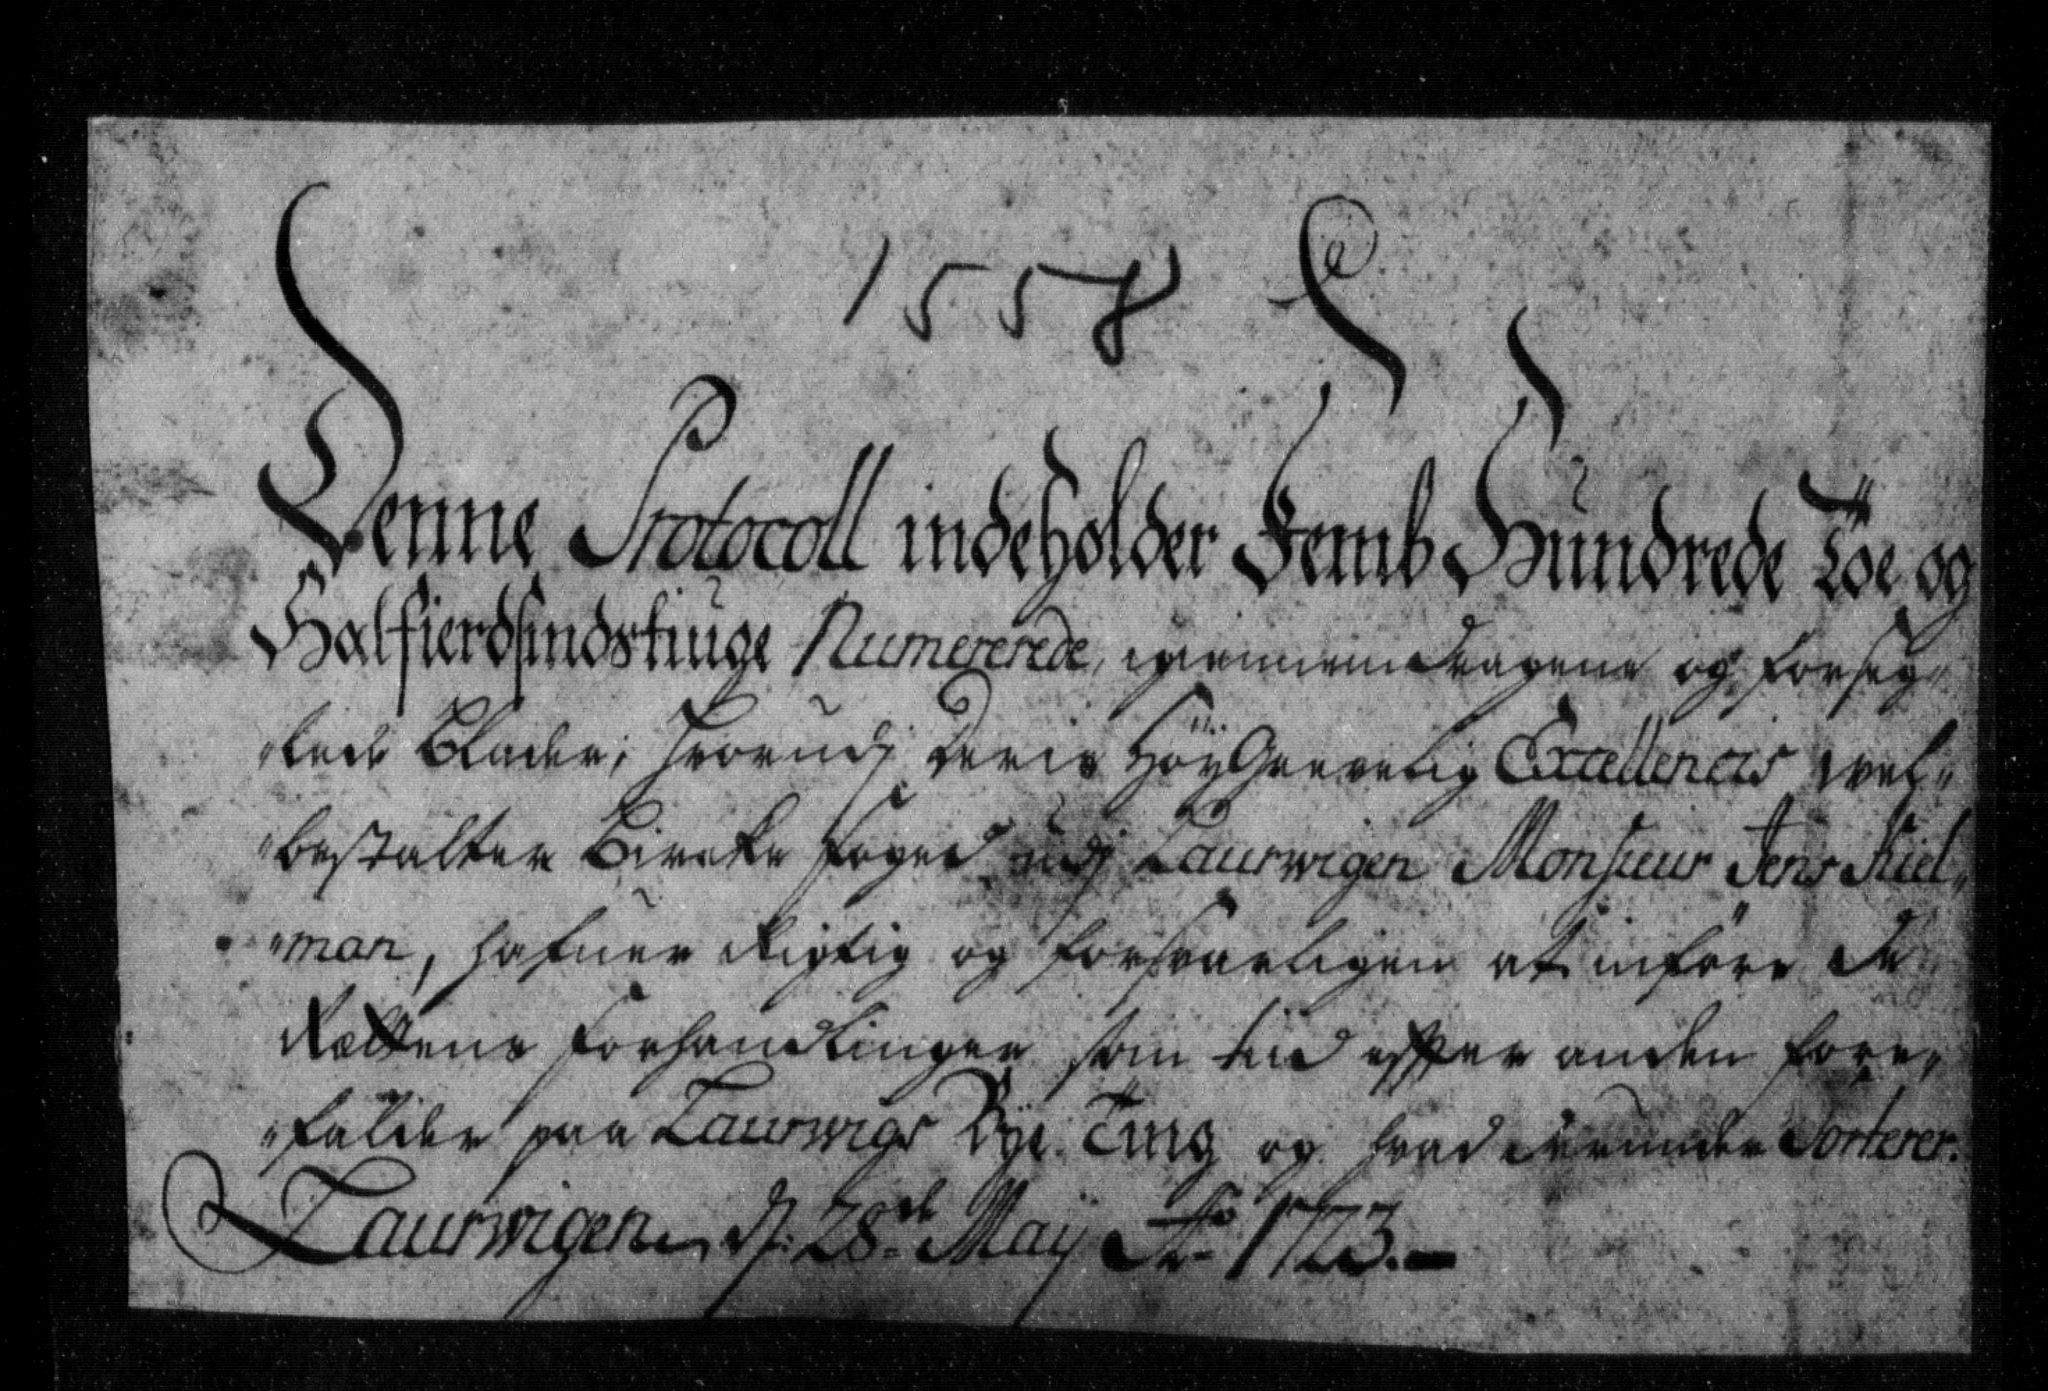 1558
Denne Protocoll indeholder Femb Hundrede Töe og
Halfierdsindstiuge Numererede, igiennemdragene og forseg-
-lede Blader, hvorudj Deris HöyGrevelig Excellencis vel-
-bestalter Bircke foged udj Laurwigen Monsieur Jens Kiel-
-man, hafuer Rigtig og forsvarligen at indföre de
Rættens forhandlinger som tid effter anden fore-
-falder paa Laurwigs Bÿe Ting og hvad derunder Sorterer.
Laurwigen d: 28de Maÿ Ao 1723.-